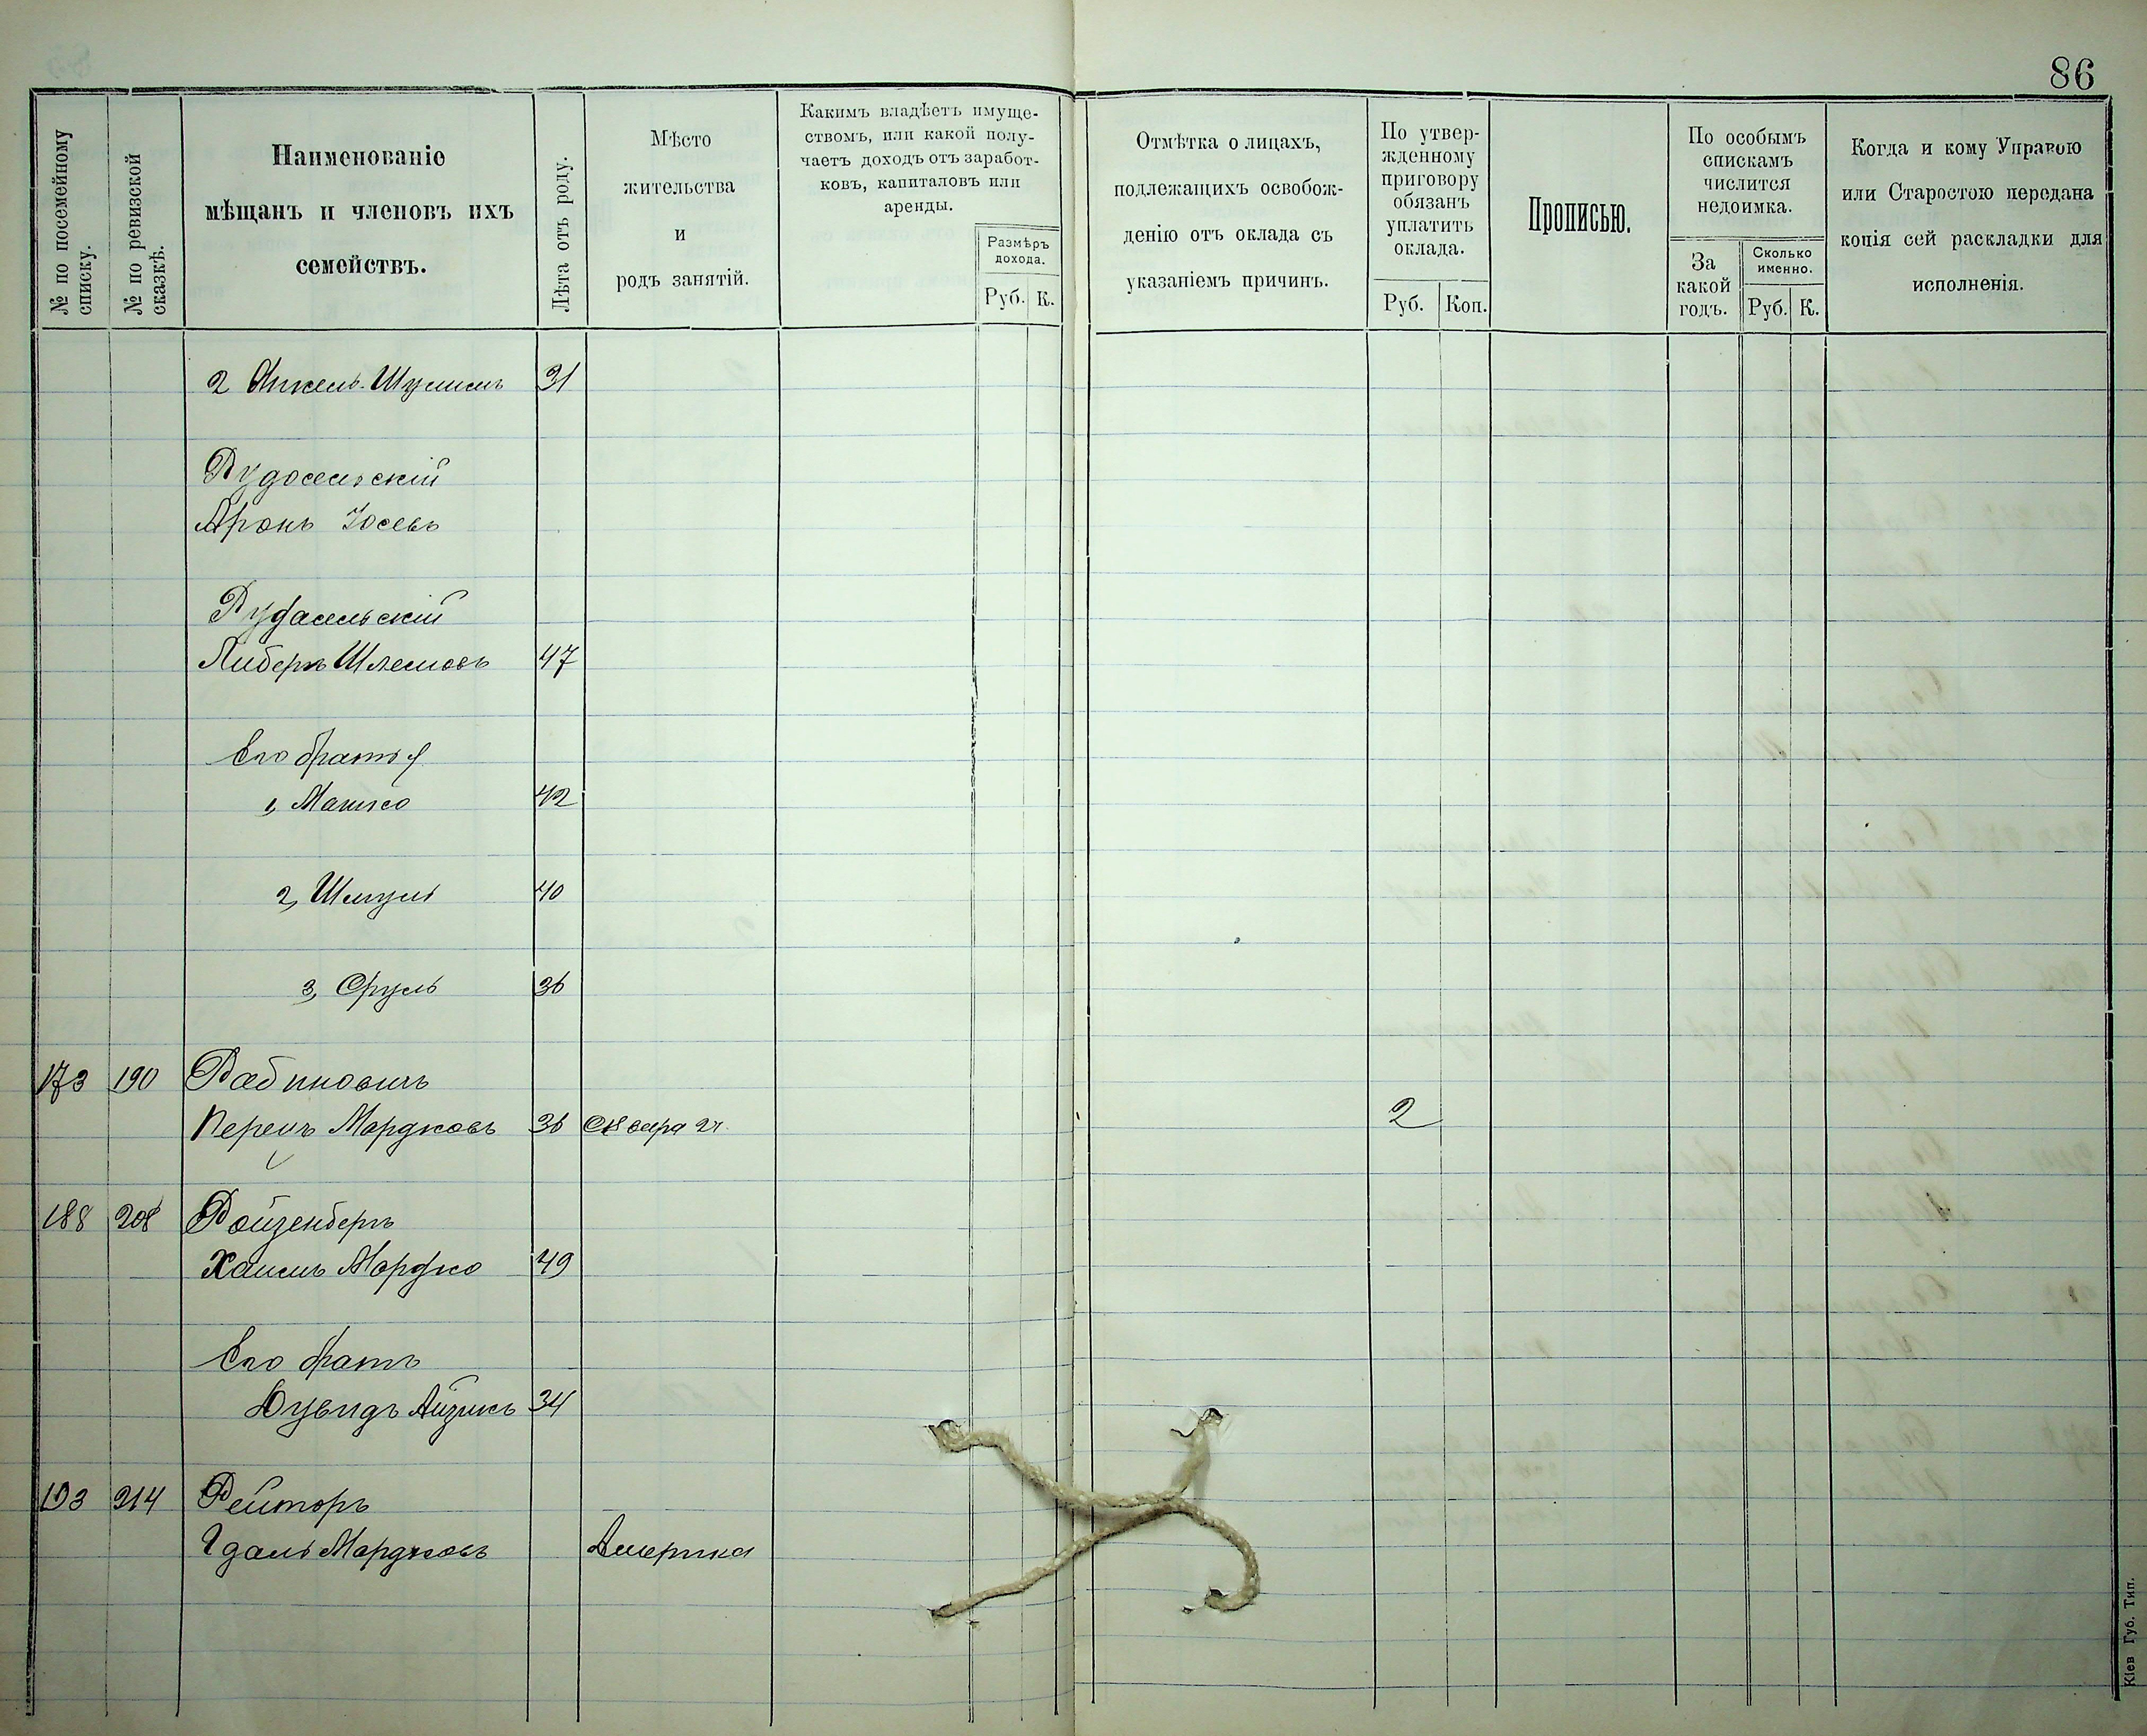 86
№ по посемейному списку.
№ по ревизской сказкѣ.
Наименованіе
мѣщанъ и членовъ ихъ
семействъ.
Лѣта отъ роду.
Мѣсто
жительства
и
родъ занятій.
Какимъ владѣетъ имуще-
ствомъ, или какой полу-
чаетъ доходъ отъ заработ-
ковъ, капиталовъ или
аренды.
Размѣръ
дохода.
Руб. К.
Отмѣтка о лицахъ,
подлежащихъ освобож-
денію отъ оклада съ
указаніемъ причинъ.
По утвер-
жденному
приговору
обязанъ
уплатить
оклада.
Руб. Коп.
Прописью.
По особымъ
спискамъ
числится
недоимка.
За
какой
годъ.
Сколько
именно.
Руб. К.
Когда и кому Управою
или Старостою передана
копія сей раскладки для
исполненія.
2 Шулимъ 31
Рудосельскій
Аронъ Іосевъ
Рудасельскій
Либеръ Шлемовъ 47
Его братья
1, Машко 42
2, Шмуль 40
3, Сруль 36
173 190 Рабиновичъ
Перецъ Мордковъ 36 Сквира 2
188 208 Ройзенбергъ
Хаимъ Мордко 49
Его братъ
Дувидъ Айзикъ 34
193 214 Рейторъ
Гдаль Мордковъ Америка
Кіев Губ. Тип.